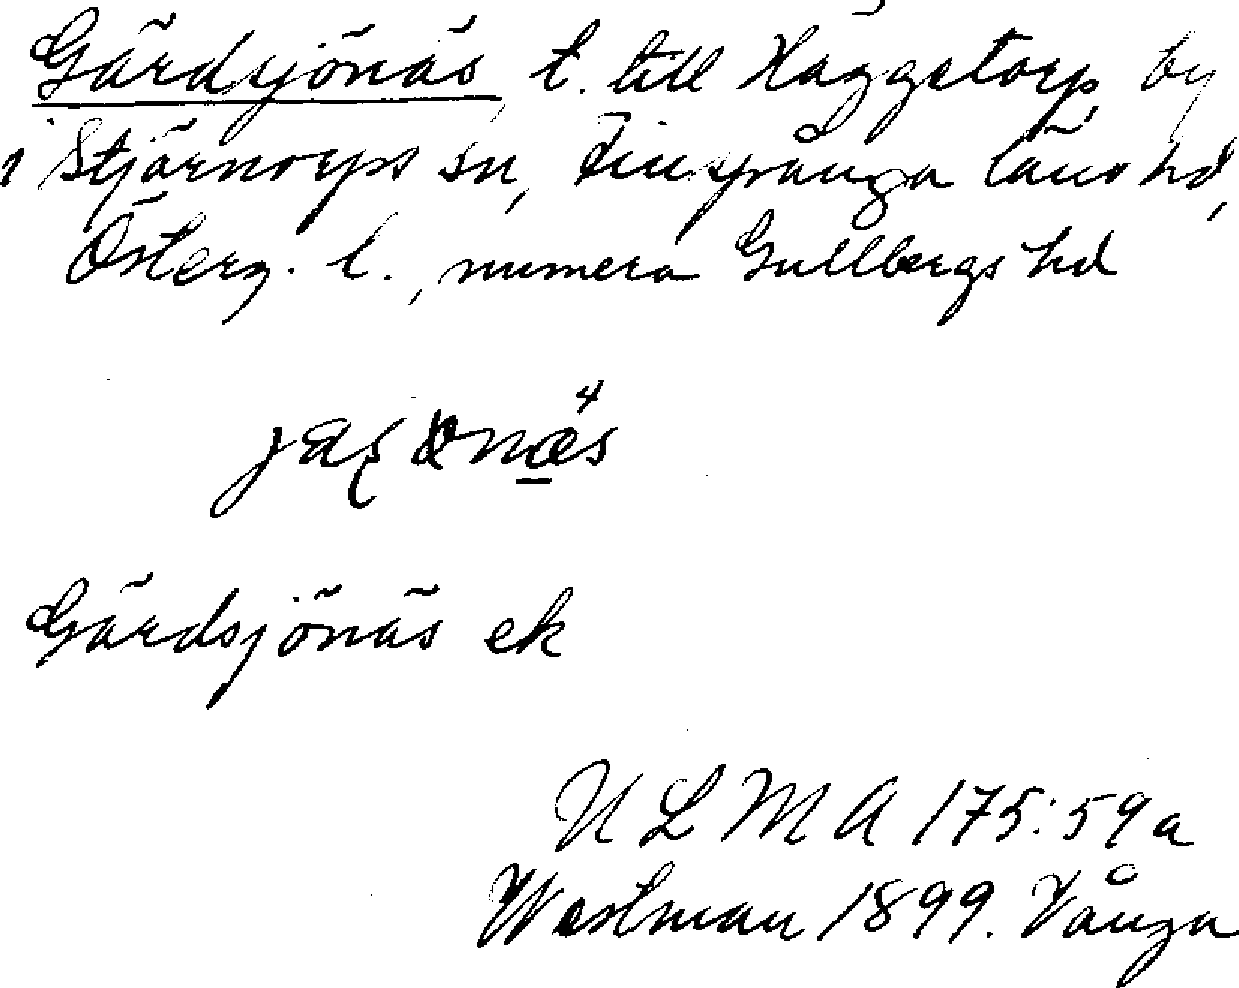 Gärdsjönäs, t. till Häggetorp by
i Stjärnorps sn, Finspånga läns hd,
Österg. l., numera Gullbergs hd
Gärdsjönäs ek
ULMA 175:59a
Westman 1899. Vånga